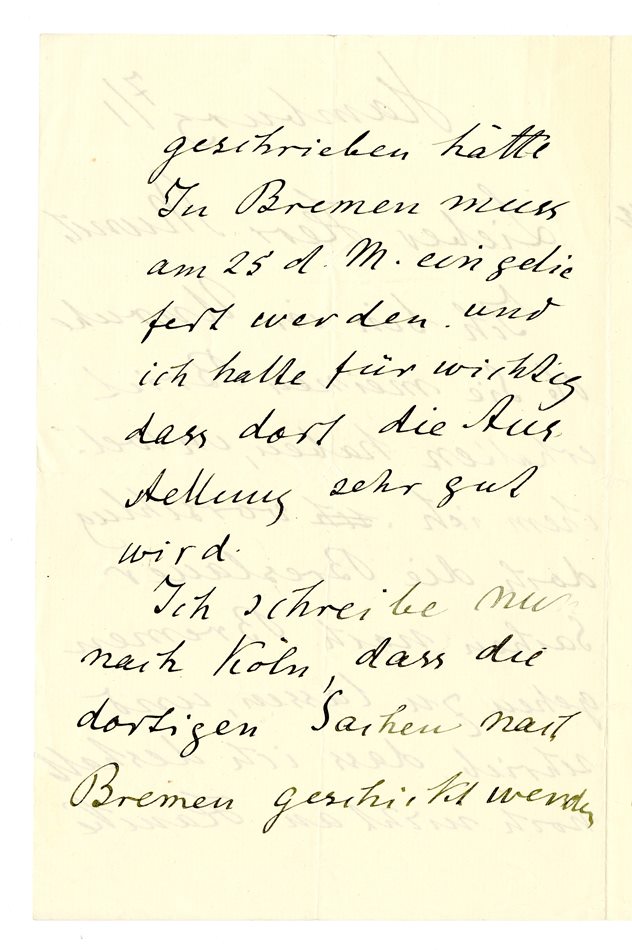 geschrieben hätte
In Bremen muss
am 25 d. M. eingelie
fert werden. und
ich halte für wichtig
dass dort die Aus
stellung sehr gut
wird.
Ich schreibe nun
nach Köln, dass die
dortigen Sachen nach
Bremen geschickt werden